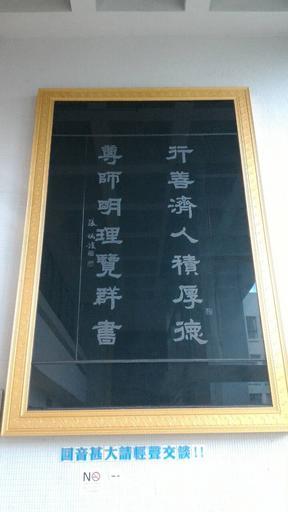 行善濟人積厚德
尊師明理覽群書
回音甚大請輕聲交談!!
N